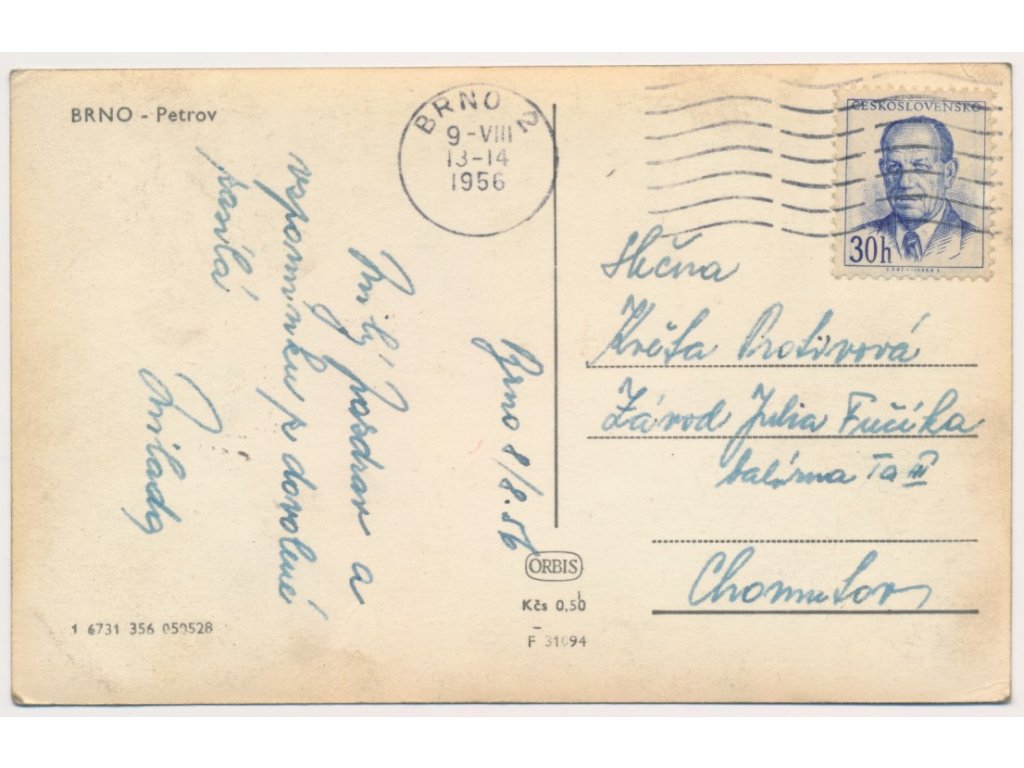 BRNO - Petrov
BRNO 2
9-VIII
13-14
1956
ČESKOSLOVENSKO
30h
Brno 8/8.56
Milý pozdrav a
vzpomínku z dovolené
Milada
Slečna
Květa Protivová
Závod Julia Fučíka
Chomutov
ORBIS
Kčs 0,50
F 31094
1 6731 356 050528